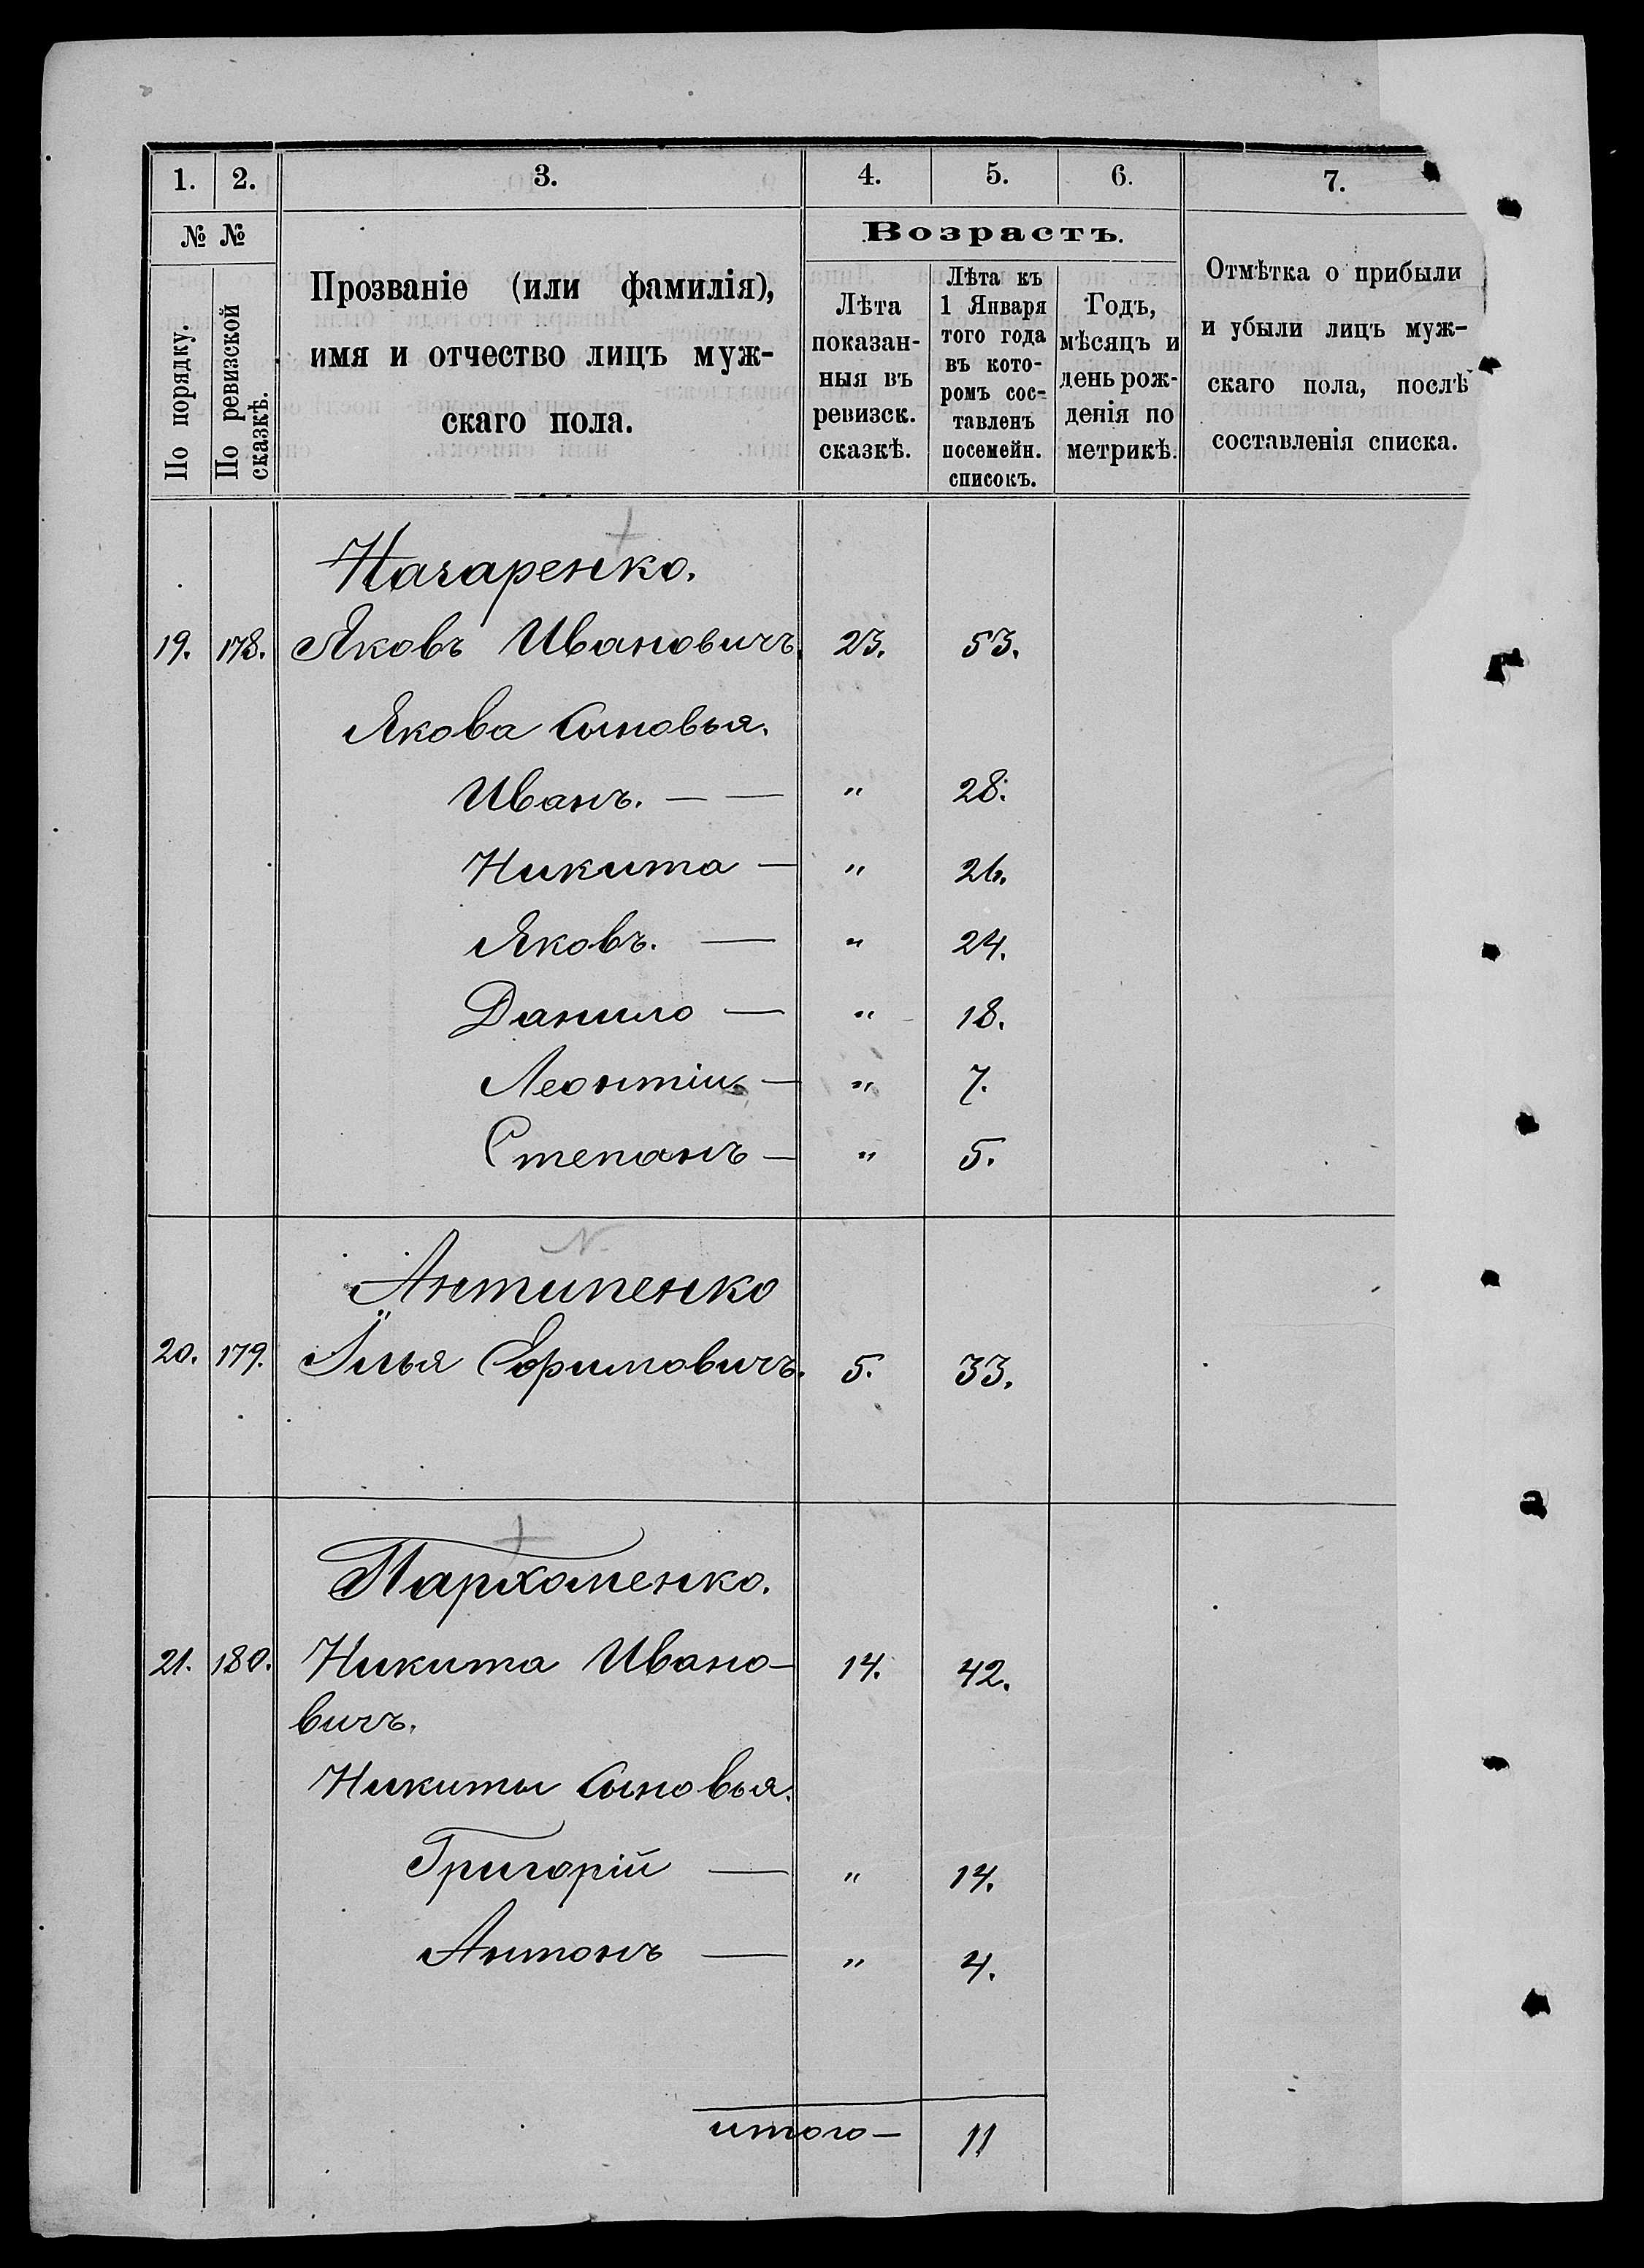 1. 2. 3. 4. 5. 6. 7.
№ №
По порядку.
По ревизской сказкѣ.
Прозваніе (или фамилія),
имя и отчество лицъ муж-
скаго пола.
Возрастъ.
Лѣта
показан-
ныя въ
ревизск.
сказкѣ.
Лѣта къ
1 Января
того года
въ кото-
ромъ сос-
тавленъ
посемейн.
списокъ.
Годъ,
мѣсяцъ и
день рож-
денія по
метрикѣ.
Отмѣтка о прибыли
и убыли лицъ муж-
скаго пола, послѣ
составленія списка.
Начаренко.
19. 178. Яковъ Ивановичъ. 23. 53.
Якова сыновья.
Иванъ. — — " 28.
Никита — " 26.
Яковъ. — " 24.
Данило — " 18.
Леонтій — " 7.
Степанъ — " 5.
Антипенко
20. 179. Илья Ефимовичъ. 5. 33.
Пархоменко.
21. 180. Никита Ивано- 14. 42.
вичъ.
Никиты сыновья.
Григорій — " 14.
Антонъ — " 4.
итого — 11